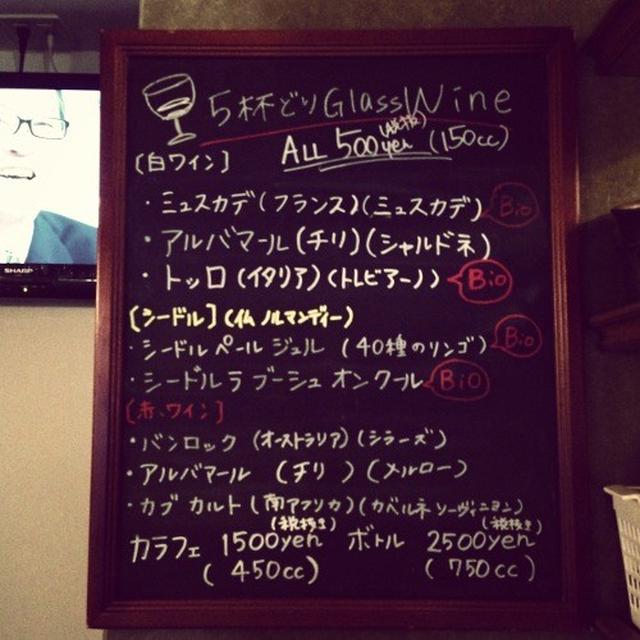 5杯どり GlassWine
ALL 500yen (税抜) (150cc)
[白ワイン]
・ミュスカデ(フランス)(ミュスカデ) Bio
・アルバマール(チリ)(シャルドネ)
・トッロ(イタリア)(トレビアーノ) Bio
[シードル](仏 ノルマンディー)
・シードル ペール ジュル (40種のリンゴ) Bio
・シードル ラ ブーシュ オン クール BiO
[赤ワイン]
・バンロック (オーストラリア)(シラーズ)
・アルバマール (チリ)(メルロー)
・カブ カルト(南アフリカ)(カベルネ ソーヴィニヨン)
カラフェ 1500yen (税抜き) ボトル 2500yen (税抜き)
(450cc) (750cc)
SHARP